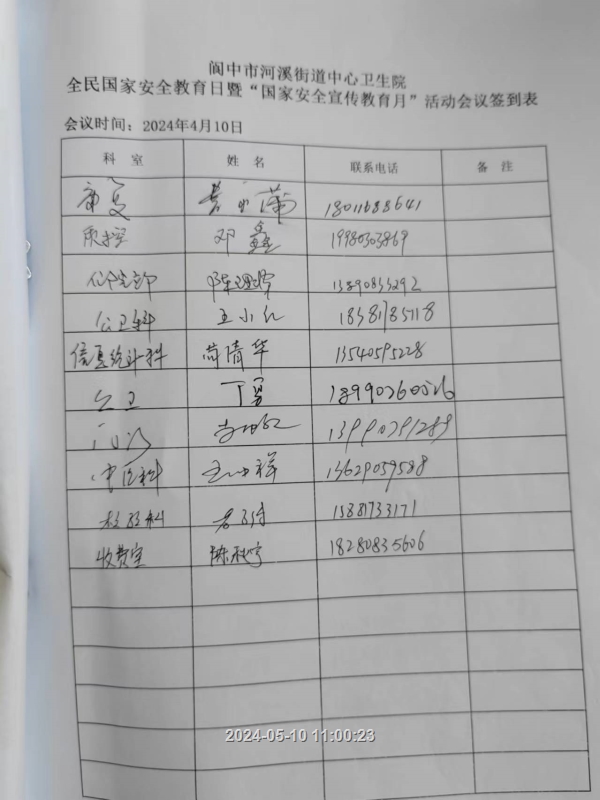 阆中市河溪街道中心卫生院
全民国家安全教育日暨“国家安全宣传教育月”活动会议签到表
会议时间：2024年4月10日
科 室 姓 名 联系电话 备 注
康复 18011688641
质控 邓鑫 19980303869
住院部 13890833292
公卫科 王小红 18381785118
信息统计科 苟清华 13540595228
公卫 丁勇 18990760526
门诊 13990791289
中医科 13629059588
检验科 1588733171
收费室 18280835606
2024-05-10 11:00:23